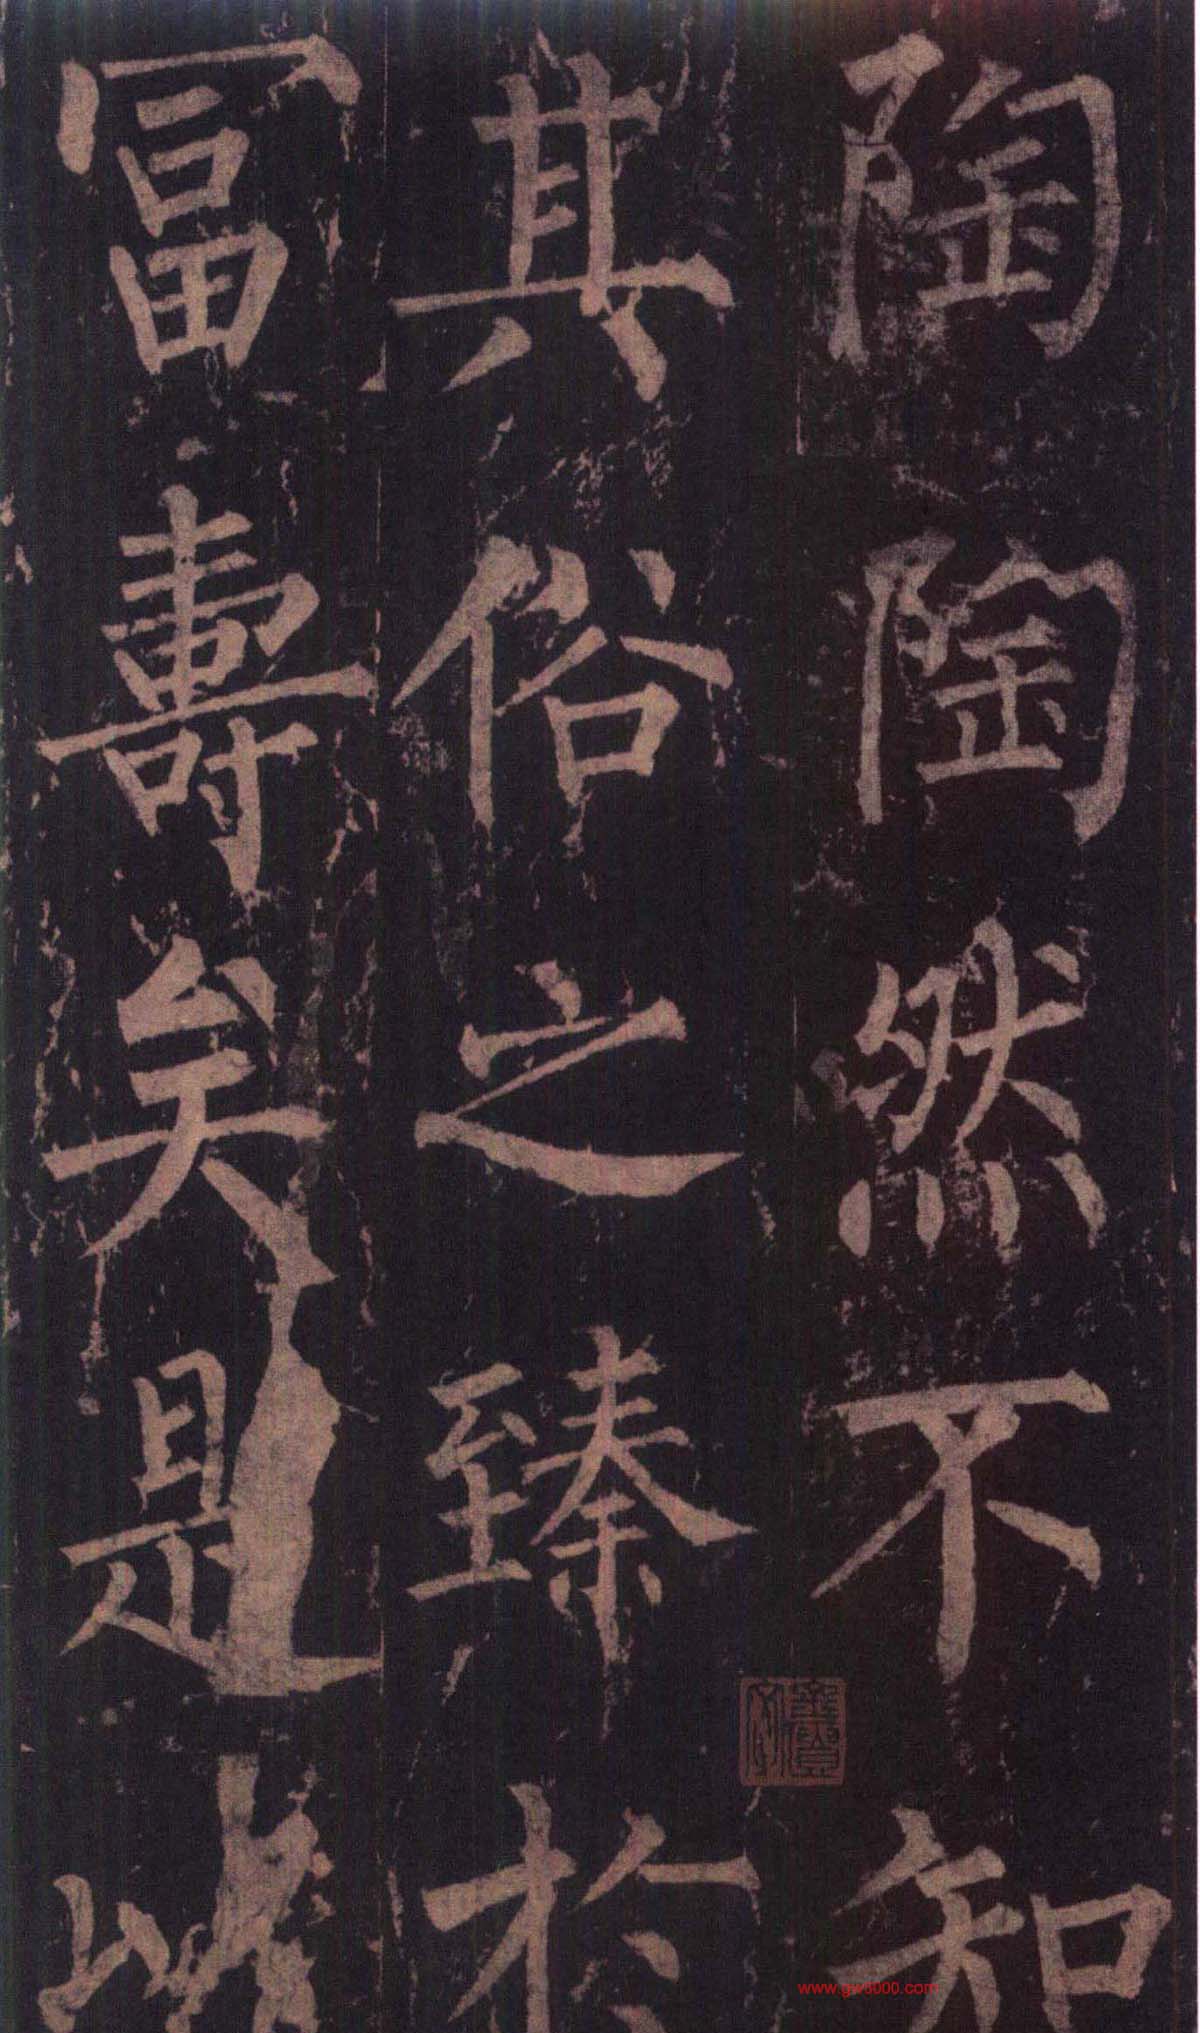 陶陶然不知
其俗之臻於
冨壽矣是
www.gw8000.com